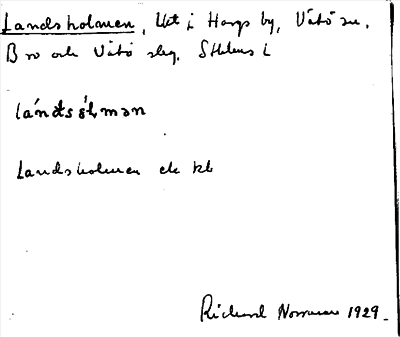 Landsholmen, Utt i Hargs by, Vätö sn,
Bro och Vätö slg. Sthlms l
Landsholmen ek kb
Richard Norrman 1929.